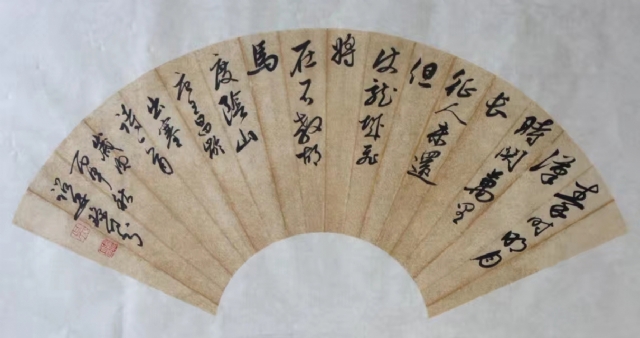 秦时明月
漢
時関萬里
長
征人未還
但
使龍城飛
將
在不教胡
馬
度陰山
唐王昌齡
出塞
詩一首
歲